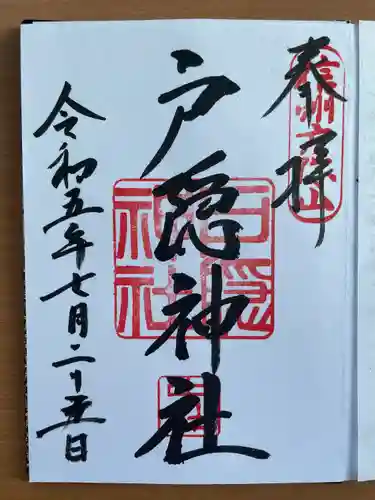 奉拝
信州戸隠山
戸隠神社
戸隠神社
令和五年七月二十五日